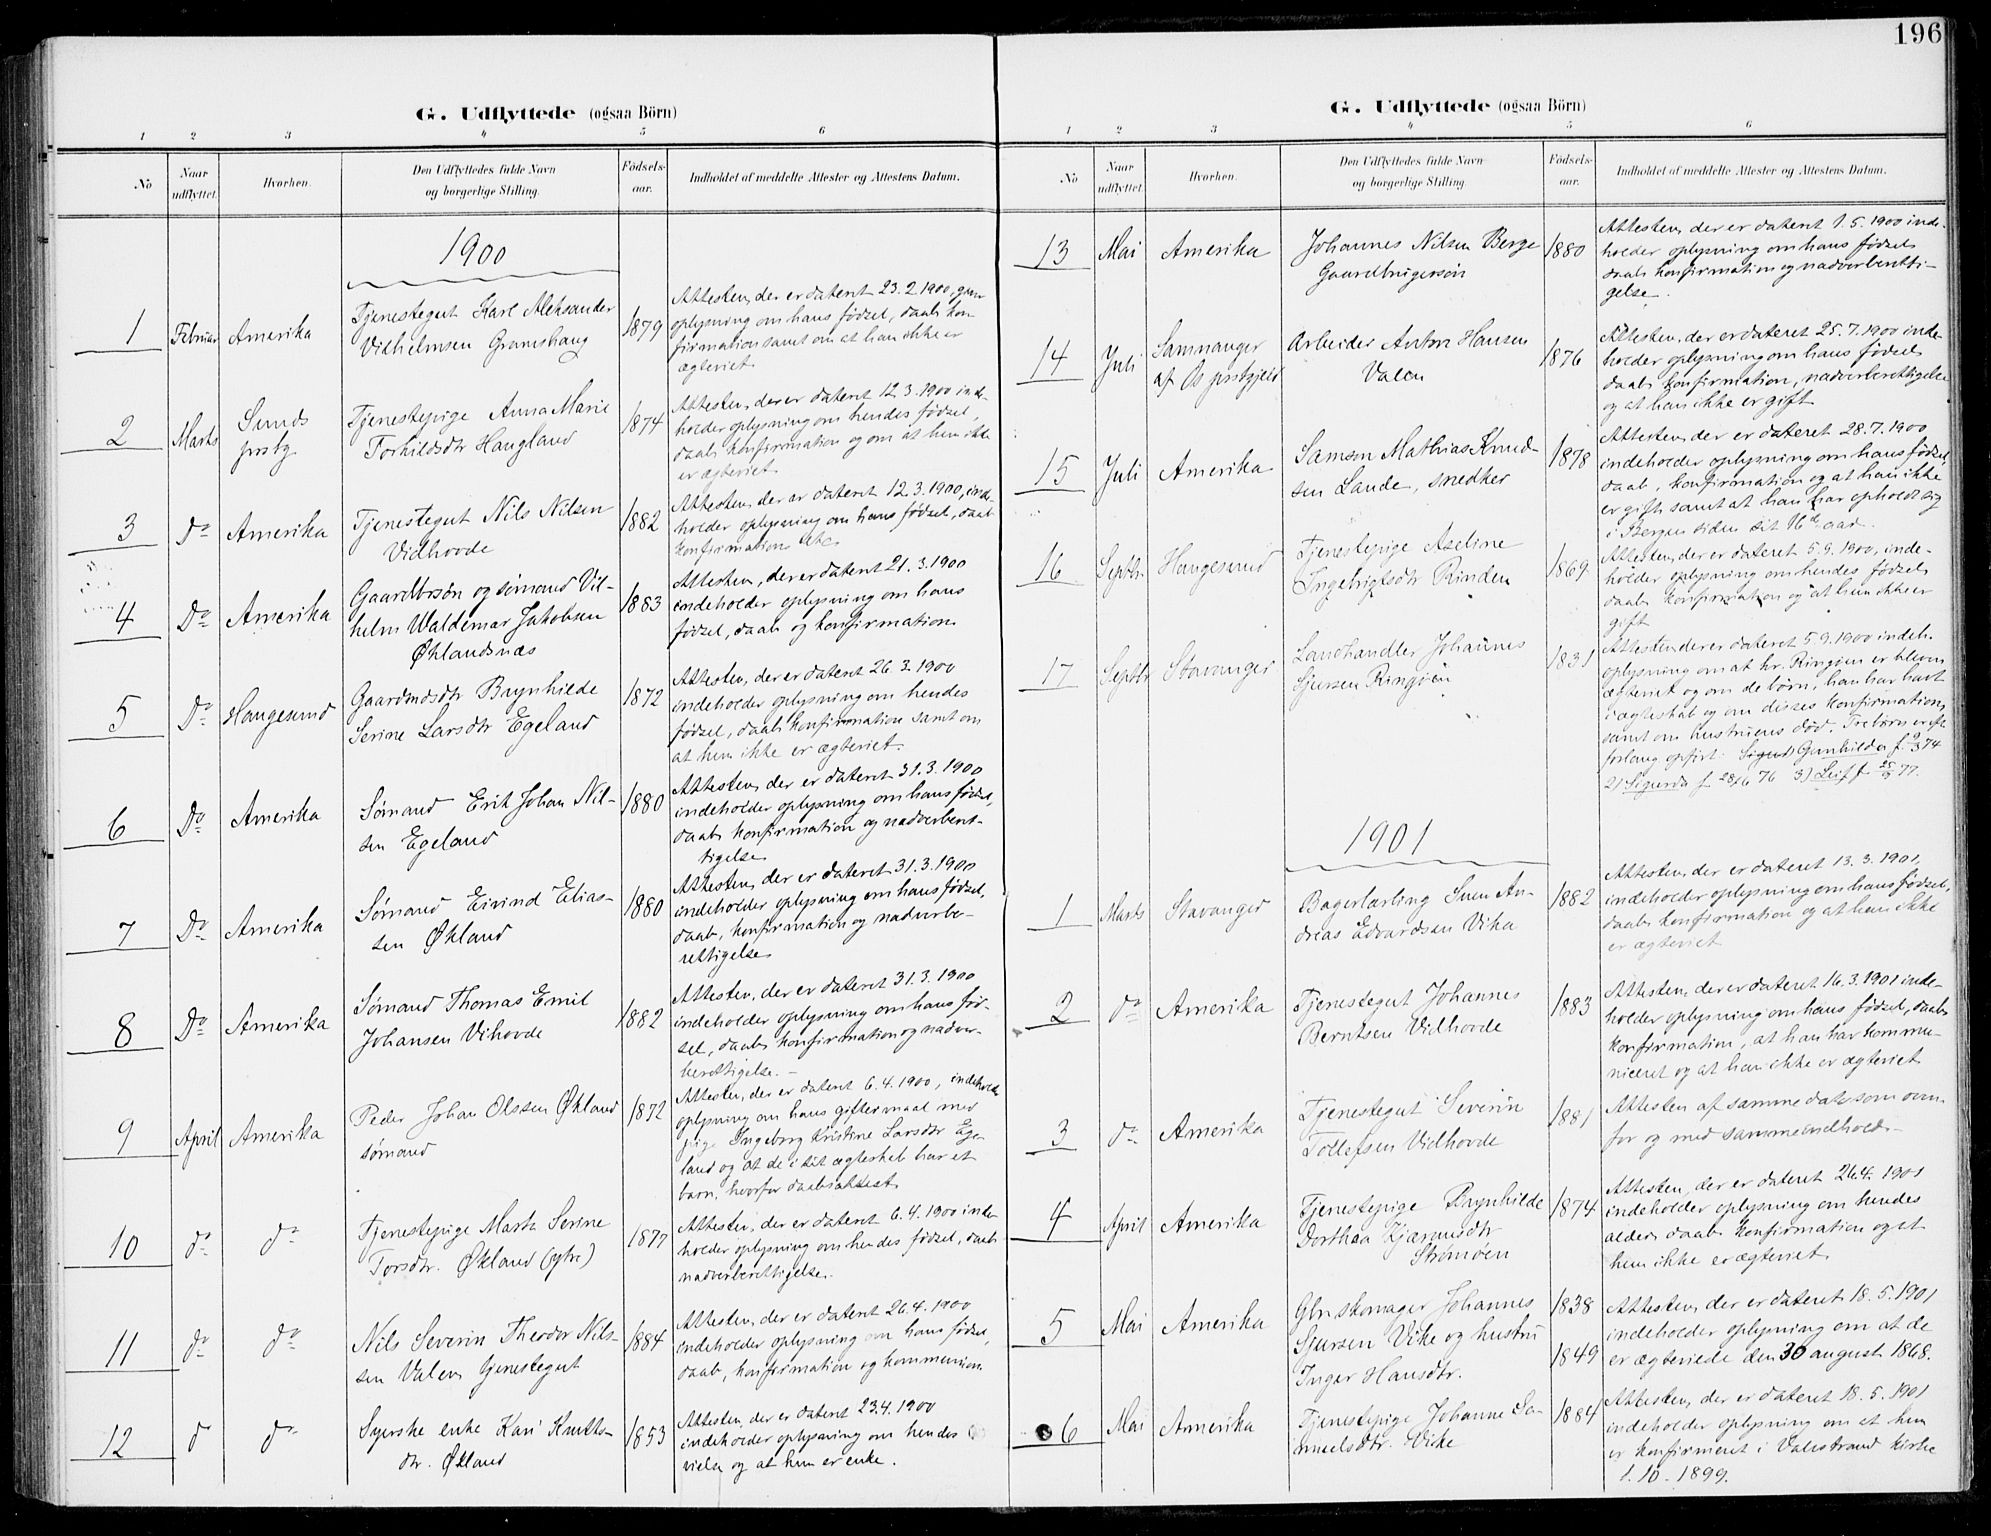 196
G. Udflyttede (ogsaa Börn)
1 2 3 4 5 6
No
Naar udflyttet.
Hvorhen.
Den Udflyttedes fulde Navn og borgerlige Stilling.
Fødselsaar.
Indholdet af meddelte Attester og Attestens Datum.
1900
1 Februar Amerika
Tjenestegut Karl Aleksander
Vidhelmsen Gramshaug
1879
Attesten, der er dateret 23.2.1900,
oplysning om hans fødsel, daab kon-
firmation samt om at han ikke er
ægteviet
2 Marts Sunds
prstg
Tjenestepige Anna Marie
Torkildsdtr Haugland
1874
Attesten, der er dateret 12.3.1900 inde-
holder oplysning om hendes fødsel,
daab konfirmation og om at hun ikke
er ægteviet
3 Do Amerika
Tjenestegut Nils Nilsen
Vidhovde
1882
Attesten, der er dateret 12.3.1900, inde-
holder oplysning om hans fødsel, daab
konfirmation etc
4 Do Amerika
Gaardbrsøn og sømand Vil-
helm Waldemar Jakobsen
Øklandsnæs
1883
Attesten, der er dateret 21.3.1900
indeholder oplysning om hans
fødsel, daab og konfirmation
5 Do Haugesund
Gaardmdsdtr Brynhilde
Serine Larsdtr Egeland
1872
Attesten, der er dateret 26.3.1900
indeholder oplysning om hendes
fødsel, daab konfirmation samt om
at hun ikke er ægteviet.
6 Do Amerika
Sømand Erik Johan Nil-
sen Egeland
1880
Attesten, der er dateret 31.3.1900
indeholder oplysning om hans fødsel,
daab konfirmation og nadverberet-
tigelse
7 Do Amerika
Sømand Eivind Elias-
sen Økland
1880
Attesten, der er dateret 31.3.1900
indeholder oplysning om hans fødsel,
daab, konfirmation og nadverbe-
rettigelse
8 Do Amerika
Sømand Thomas Emil
Johansen Vihovde
1882
Attesten, der er dateret 31.3.1900
indeholder oplysning om hans fød-
sel, daab konfirmation og nadver-
berettigelse. -
9 April Amerika
Peder Johan Olssen Økland
sømand
1872
Attesten, der er dateret 6.4.1900, indeholder
oplysning om hans giftermaal med
pige Ingeborg Kristine Larsdtr Ege-
land og at de i sit ægteskab har et
barn, hvorfor daabsattest
10 do do
Tjenestepige Marta Serine
Torsdtr. Økland (ytre)
1877
Attesten, der er dateret 6.4.1900 inde
holder oplysning om hendes fødsel, daab
nadverberettigelse.
11 do do
Nils Severin Theodor Nils-
sen Valen tjenestegut
1884
Attesten, der er dateret 26.4.1900
indeholder oplysning om hans fødsel,
daab, konfirmation og kommunion
12 d do
Syerske enke Kari Knuts-
dtr. Økland
1853
Attesten, der er dateret 23.4.1900
indeholder oplysning om hendes
vielse og at hun er enke.
G. Udflyttede (ogsaa Börn)
1 2 3 4 5 6
No
Naar udflyttet.
Hvorhen.
Den Udflyttedes fulde Navn og borgerlige Stilling.
Fødselsaar.
Indholdet af meddelte Attester og Attestens Datum.
13 Mai Amerika
Johannes Nilsen Berge
Gaardbrugersøn
1880
Attesten, der er dateret 1.5.1900 inde-
holder oplysning om hans fødsel
daab konfirmation og nadverberetti-
gelse.
14 Juli Samnanger
af Os prstgjeld
Arbeider Anton Hansen
Valen
1876
Attesten, der er dateret 25.7.1900 inde-
holder oplysning om hans fødsel
daab konfirmation, nadverberettigelse
og at han ikke er gift
15 Juli Amerika
Samson Mathias Knud-
sen Lande, snedker
1878
Attesten, der er dateret 28.7.1900
indeholder oplysning om hans fødsel,
daab, konfirmation og at han ikke
er gift samt at han har opholdt sig
i Bergen siden sit 16de aar.
16 Septbr. Haugesund
Tjenestepige Aseline
Ingebrigtsdtr Rinden
1869
Attesten, der er dateret 5.9.1900, inde-
holder oplysning om hendes fødsel
daab konfirmation og at hun ikke er
gift
17 Septbr Stavanger
Landhandler Johannes
Sjursen Ringøen
1831
Attesten der er dateret 5.9.1900 indeh.
oplysning om at hr. Ringøen er bleven
og om de børn, han har havt
i ægteskab og om disses konfirmation,
samt om hustruens død. Tre børn er
forlang opført: Gunhilda f. 9/3 74
2) Sigurda f. 28/6 76 3) Leif f. 25/9 77.
1901
1 Marts Stavanger
Bagerlærling Sven An-
dreas Edvardsen Vika
1882
Attesten, der er dateret 13.3.1901,
indeholder oplysning om hans fødsel,
daab konfirmation og at han ikke
er ægteviet
2 do Amerika
Tjenestegut Johannes
Berntsen Vidhovde
1883
Attesten, der er dateret 16.3.1901 inde-
holder oplysning om hans fødsel, daab
konfirmation, at han har kommu-
niceret og at han ikke er ægteviet
3 do Amerika
Tjenestegut Severin
Tollefsen Vidhovde
1881
Attesten af samme dato som oven-
for og med samme indhold. -
4 April Amerika
Tjenestepige Brynhilde
Dorthea Kjærandsdtr
Strømøen
1874
Attesten, der er dateret 26.4.1901
indeholder oplysning om hendes
alder daab konfirmation og at
hun ikke er ægteviet.
5 Mai Amerika
Gbr. skomager Johannes
Sjursen Vike og hustru
Inger Hansdtr.
1838
1849
Attesten, der er dateret 18.5.1901
indeholder oplysning om at de
er ægteviede den 30 august 1868.
6 Mai Amerika
Tjenestepige Johanne Sa-
muelsdtr. Vike
1884
Attesten, der er dateret 18.5.1901
indeholder oplysning om at hun
er konfirmeret i Valestrand kirke
1.10.1899.